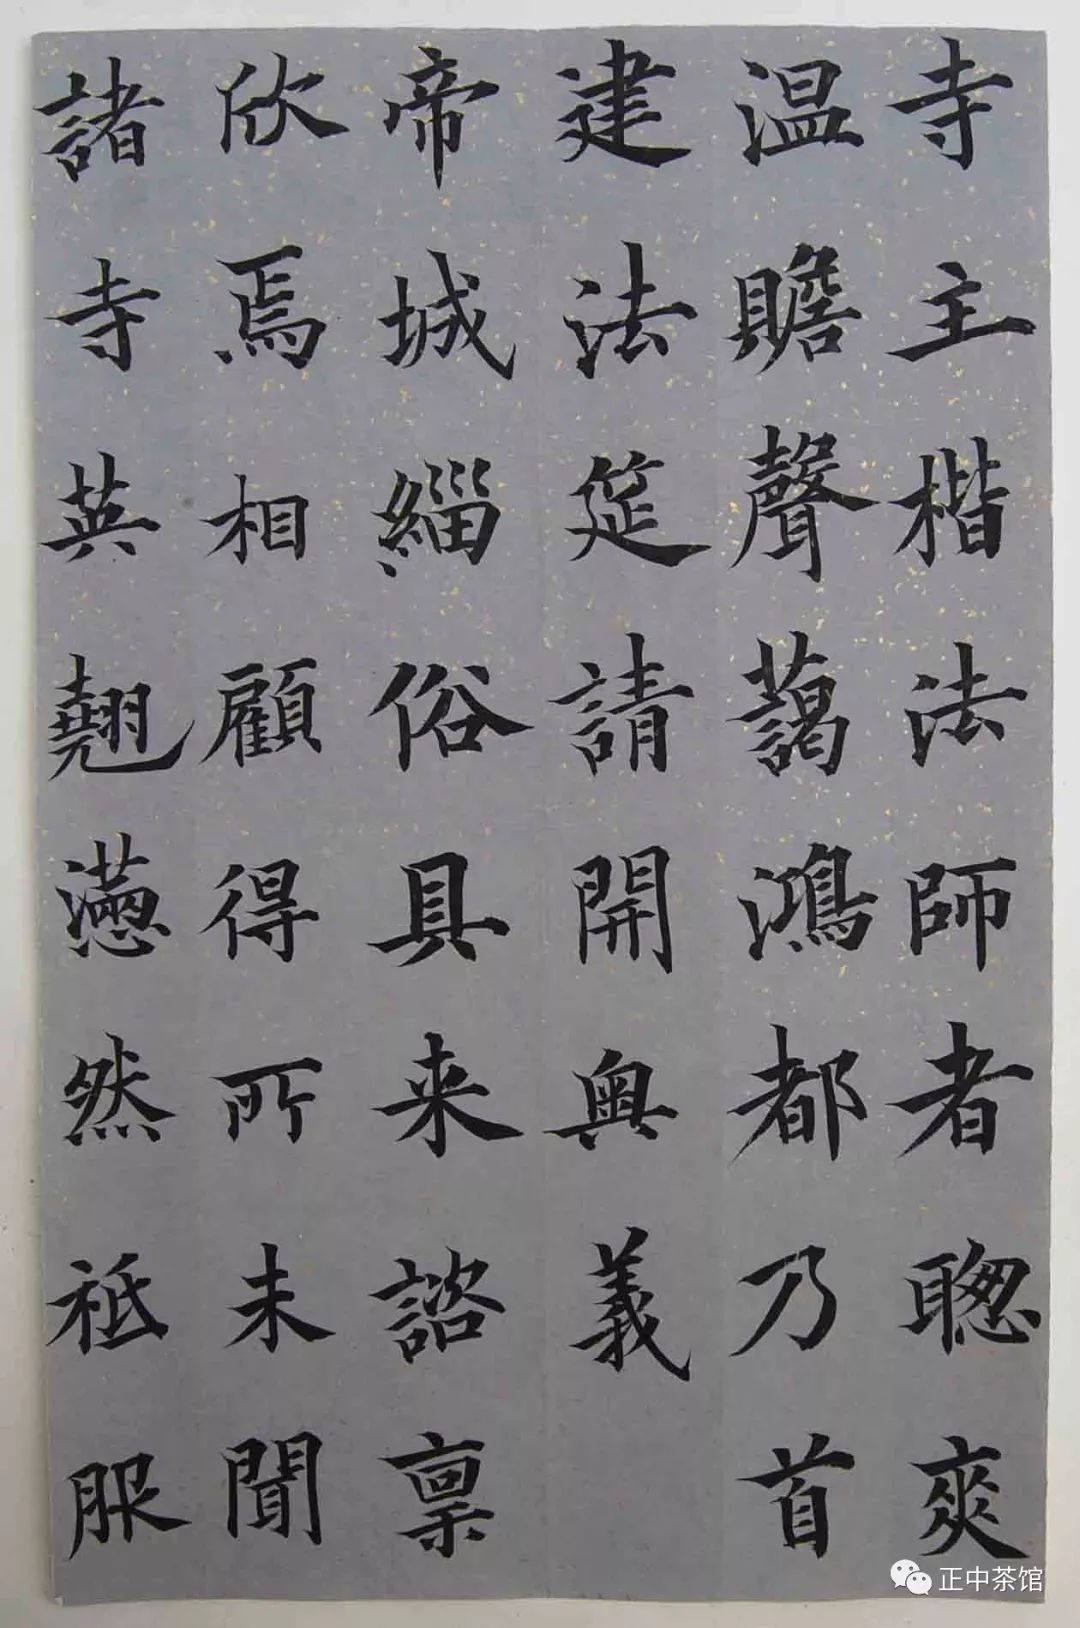 寺主楷法師者聦爽
温贍聲藹鴻都乃首
建法筵請開奥義
帝城緇俗具来諮禀
欣焉相顧得所未聞
諸寺英翹懣然祗服
正中茶馆